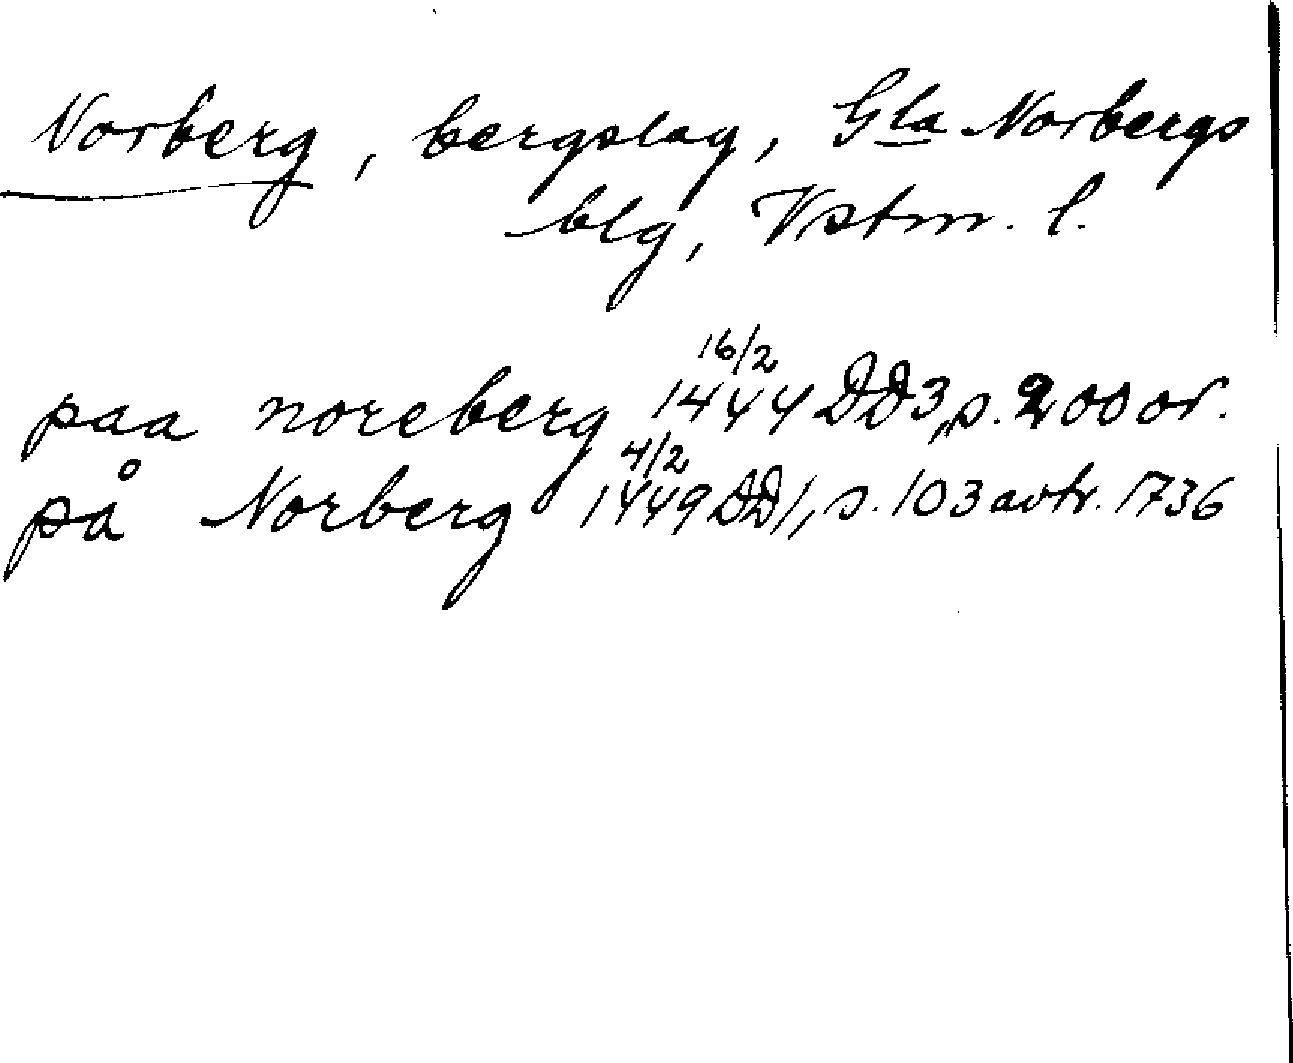 Norberg, bergslag, Gla Norbergs
blg, Vstm. l.
paa noreberg 16/2 1444 DD3, s. 200 or.
på Norberg 4/2 1449 DD1, s. 103 avtr. 1736